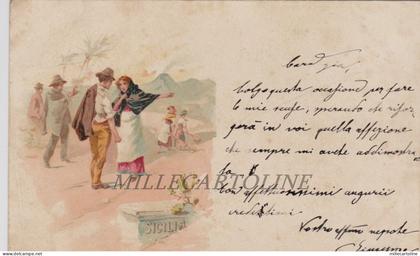 Cara Zia,
Colgo questa occasione per fare
le mie scuse, sperando che rifior-
gerà in voi quella affezione
che sempre mi avete addimostra-
ta
con affettuosissimi auguri
credetimi
Vostro affmo nepote
SICILIA
MILLECARTOLINE